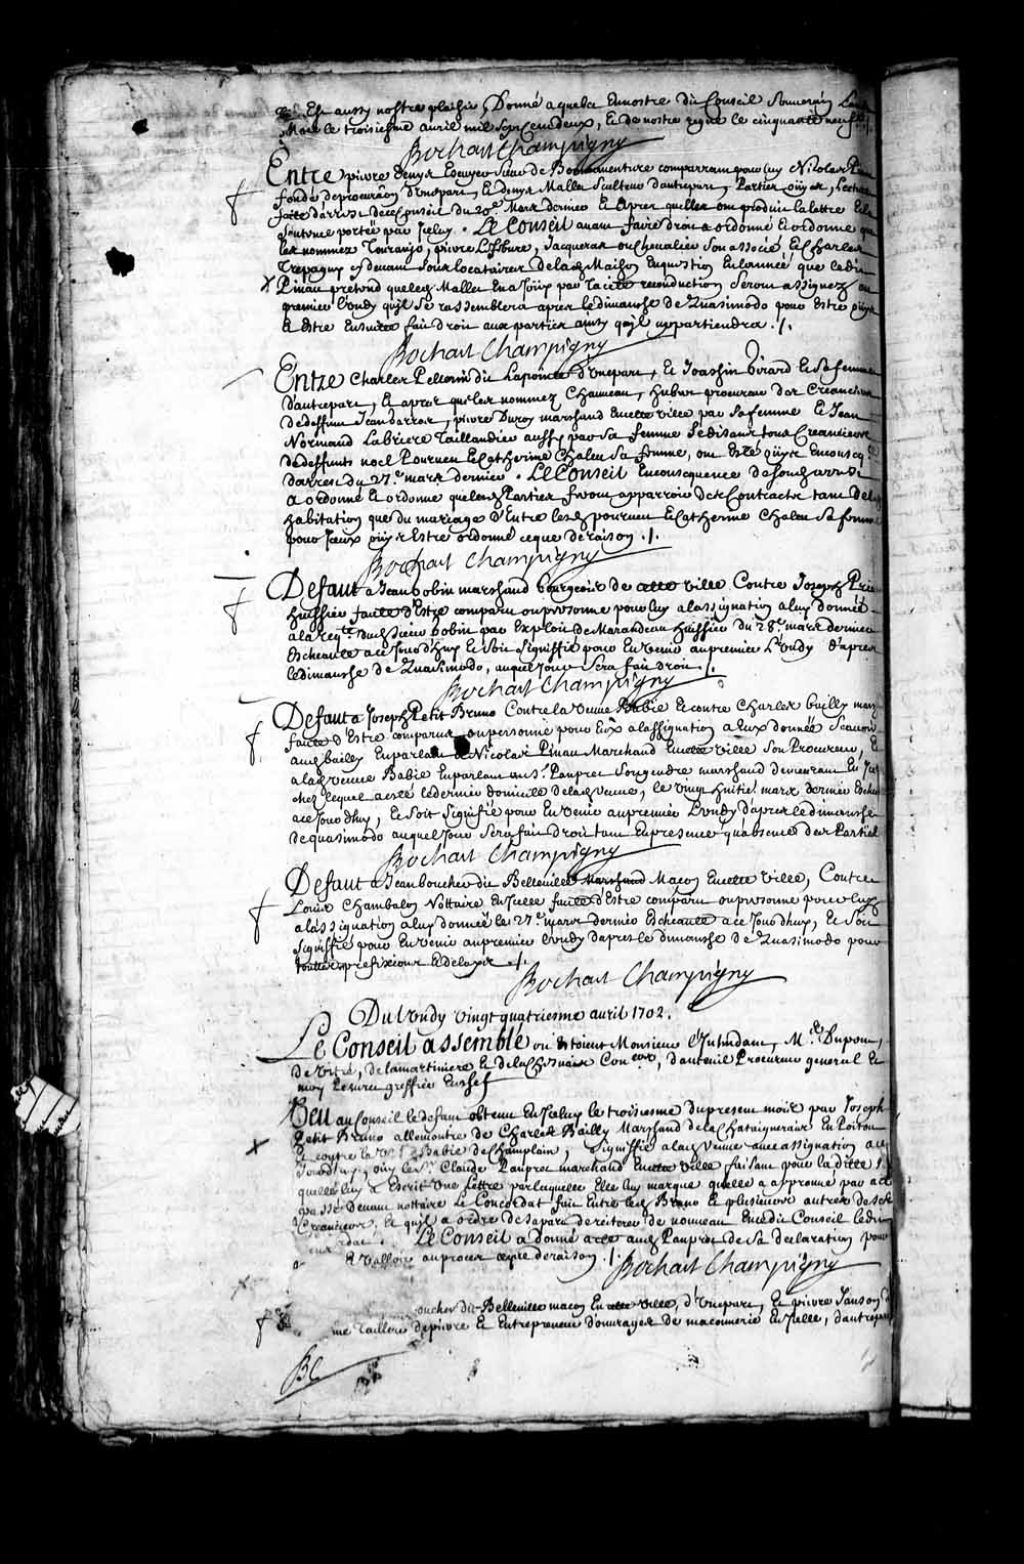 Est aussy nostre plaisir, Donné a quebec En nostre dit Conseil Souverain
le troisiesme auril mil Sept Cent deux, Et de nostre regne le cinquante neuf
Bochart Champigny
Entre pierre Denys Escuyer Sieur de Bonnauenture comparant par luy Nicolas
fondé de procuraôn d'une part, Et Denys Mallet Sculteur d'autre part, Parties ouyes, Lecture
faite d'arrest de ce Conseil du 20e Mars dernier Et Apres qu'elles ont produit la lettre Et la
sentence portée par Iceluy. Le Conseil auant faire droit a ordonné Et ordonne que
les nommez Tourangeau, pierre Lefebure, Jacqueras ou Cheualier Son associé Et Charles
Trepagny cy deuant Sous locataires de lad. Maison En question En L'année que led.
Pinau pretend que led. Mallet En a Joüy par tacite reconduction Seront assignez au
premier Lundy qu'il Se rassemblera apres le dimanche de Quasimodo pour Estre ouys
Et Estre Ensuitte fait droit aux parties ainsy qu'il appartiendra ./.
Bochart Champigny
Entre Charles Pellerin dit Lapointe d'une part, Et Joachin Girard Et Sa femme
d'autre part, Et apres que les nommez Chauueau, hubert procureur des Creanciers
de deffunt Jean barros, pierre Duroy marchand En cette ville par Sa femme Et Jean
Normand Labriere Taillandier aussy par Sa femme Se disants tous Creanciers
de deffunts noel Pourueu Et Catherine Chaleu Sa femme, ont Esté ouys En conseq.
d'arrest du 27e mars dernier. Le Conseil En consequence
a ordonné Et ordonne que lesd Parties feront apparroir des Contracts tant de la
habitation que du mariage d'Entre lesd pourueu Et Catherine Chaleu Sa femme
pour Iceux ouys Estre ordonné ce que de raison ./.
Bochart Champigny
Defaut a Jean Gobin marchand bourgeois de cette ville Contre Joseph Prieur
huissier faute d'Estre comparu ou personne pour luy a l'assignation a luy donnée
a la reqte dud Sieur Gobin par Exploit de Marandeau huissier du 28e mars dernier
Escheante a ce Jourd'huy Et Soit Signiffié pour En venir au premier Lundy d'apres
le dimanche de Quasimodo, auquel Jour Sera fait droit ./.
Bochart Champigny
Defaut a Joseph Petit Bruno Contre la veuue Babie Et contre Charles bailly
faute d'Estre comparus ou personne pour Eux a l'assignation a Eux donnée Scauoir
aud. bailly En parlant a Nicolas Pinau Marchand En cette ville Son Procureur, Et
a lad veuue Babie En parlant au Sr Paupret Son gendre marchand demeurant En
chez lequel a esté le dernier domicile de lad veuue, le vingt huitie mars dernier
a ce Jourdhuy, Et Soit Signifié pour En venir au premier Lundy d'apres le dimanche
de quasimodo auquel Jour Sera fait droit tant En presence qu'absence des Parties
Bochart Champigny
Defaut a Jean boucher dit Belleuille Marchand Macon En cette ville, Contre
Louis Chambalon Nottaire En Icelle faute d'Estre comparu ou personne pour luy
a l'assignation a luy donnée le 27e mars dernier Escheante a ce Jourdhuy, Et Soit
Signiffié pour En venir au premier Lundy d'apres le dimanche de Quasimodo pour
toutes prefixions Et delays ./.
Bochart Champigny
Du Lundy vingt quatriesme auril 1702.
Le Conseil assemblé ou Estoient Monsieur L'Intendant, Mes Dupont,
de vitré, de lamartiniere Et de la Chesnaie Coners, d'auteuil Procureur general Et
moy greffier En chef
Veu au Conseil le defaut obtenu En Iceluy le troisiesme du present mois par Joseph
Petit Bruno allencontre de Charles Bailly Marchand de la Chataigneraie En Poitou
Et contre la Ve Babie de Champlain, Signiffié a lad Veuue auec assignation a ce
Jourd'huy, ouy le Sr Claude Pauprét marchand En cette ville faisant pour la ditte
qu'elle luy a Escrit Une Lettre par laquelle Elle luy marque quelle a approuué par
passé deuant nottaire Le Concordat fait Entre led Bruno Et plusieurs autres de ses
Creanciers, Et qu'il a ordre de sa part de reiterer de nouueau En ce dit Conseil
Le Conseil a donné acte aud. Pauprét de Sa declaration pour
Valloir au proces ce que de raison ./.
Bochart Champigny
oucher dit Belleuille macon En cette ville, d'Une part, Et pierre Janson
me Tailleur de pierre Et Entrepreneur d'ouurages de maconnerie En Icelle, d'autre part
BC